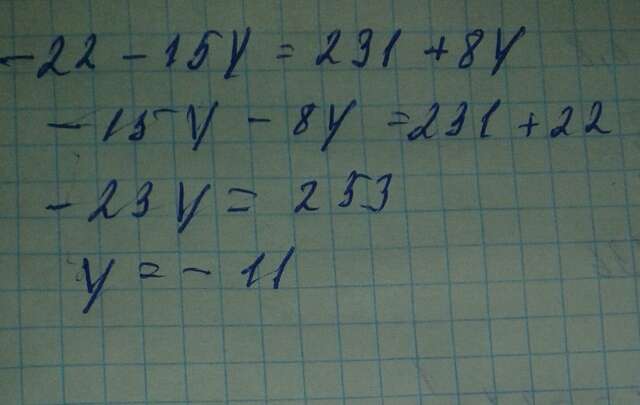 -22 - 15y = 231 + 8y
-15y - 8y = 231 + 22
-23y = 253
y = -11